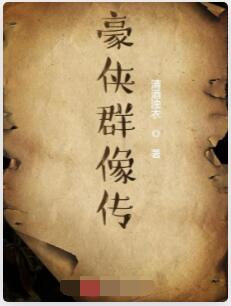 豪侠群像传
清酒独衣 ◎ 著